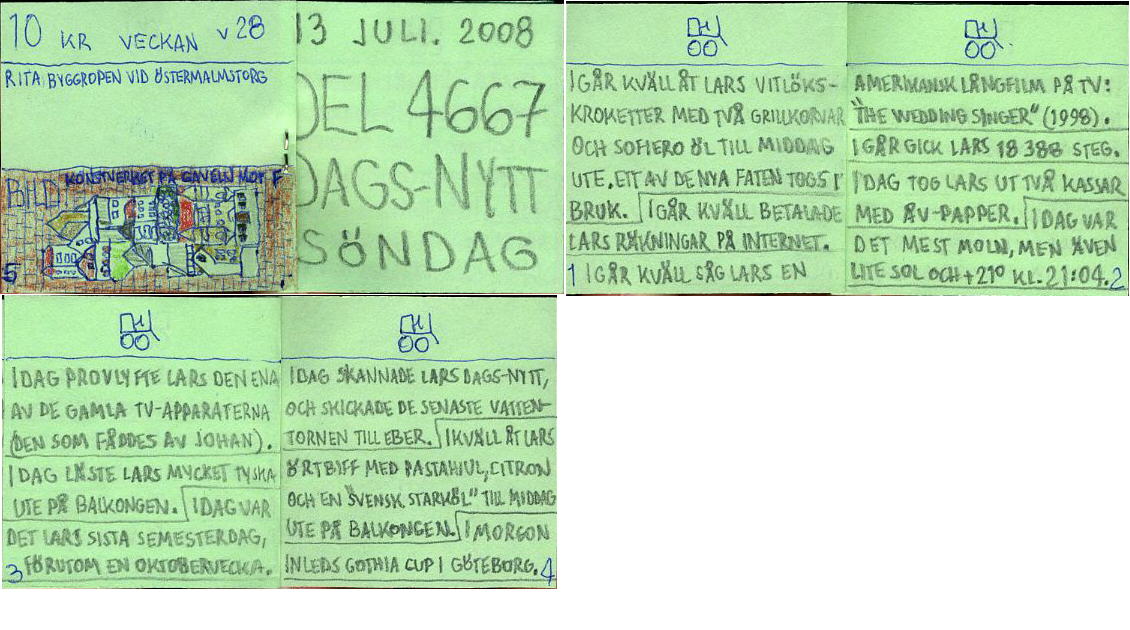 10 KR VECKAN V28
RITA BYGGROPEN VID ÖSTERMALMSTORG
BILD KONSTVERKET PÅ GAVELN MOT F
5
13 JULI. 2008
DEL 4667
DAGS-NYTT
SÖNDAG
IGÅR KVÄLL ÅT LARS VITLÖKS-
KROKETTER MED TVÅ GRILLKORVAR
OCH SOFIERO ÖL TILL MIDDAG
UTE. ETT AV DE NYA FATEN TOGS I
BRUK. IGÅR KVÄLL BETALADE
LARS RÄKNINGAR PÅ INTERNET.
1 IGÅR KVÄLL SÅG LARS EN
AMERIKANSK LÅNGFILM PÅ TV:
"THE WEDDING SINGER" (1998).
IGÅR GICK LARS 18 388 STEG.
IDAG TOG LARS UT TVÅ KASSAR
MED ÅV-PAPPER. IDAG VAR
DET MEST MOLN, MEN ÄVEN
LITE SOL OCH +21° KL. 21:04. 2
IDAG PROVLYFTE LARS DEN ENA
AV DE GAMLA TV-APPARATERNA
(DEN SOM FÖDDES AV JOHAN).
IDAG LÄSTE LARS MYCKET TYSKA
UTE PÅ BALKONGEN. IDAG VAR
DET LARS SISTA SEMESTERDAG,
3 FÖRUTOM EN OKTOBERVECKA.
IDAG SKANNADE LARS DAGS-NYTT,
OCH SKICKADE DE SENASTE VATTEN-
TORNEN TILL EBER. IKVÄLL ÅT LARS
ÖRTBIFF MED PASTAHJUL, CITRON
OCH EN "SVENSK STARKÖL" TILL MIDDAG
UTE PÅ BALKONGEN. IMORGON
INLEDS GOTHIA CUP I GÖTEBORG. 4